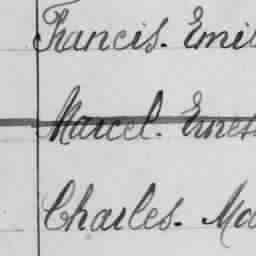 Francis. Emil
Marcel. Ernes
Charles. Ma